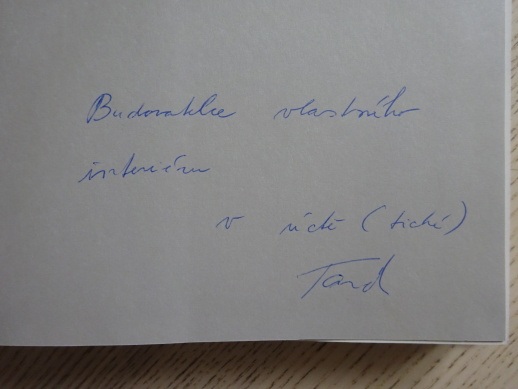 Budovatelce vlastního
interiéru
v úctě (tiché)
Tard